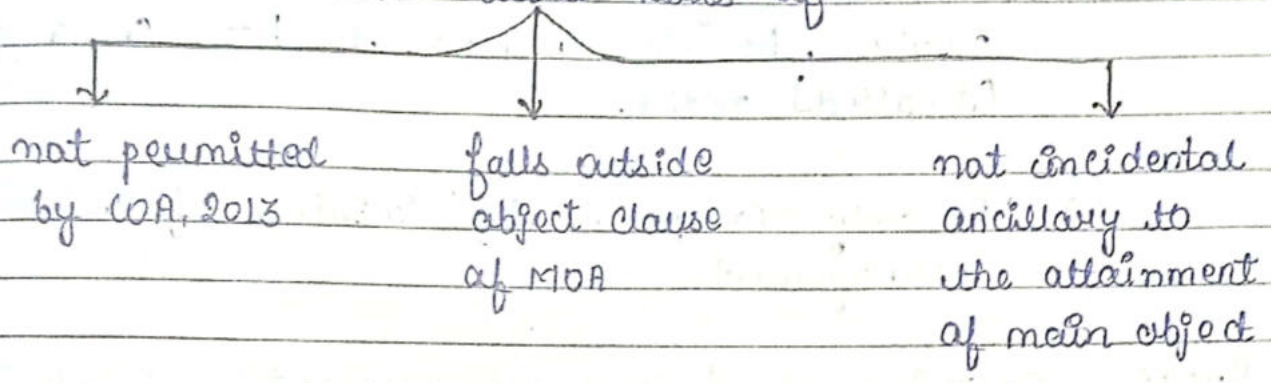 not permitted
by COA, 2013
falls outside
object clause
of MOA
not incidental
ancillary to
the attainment
of main object